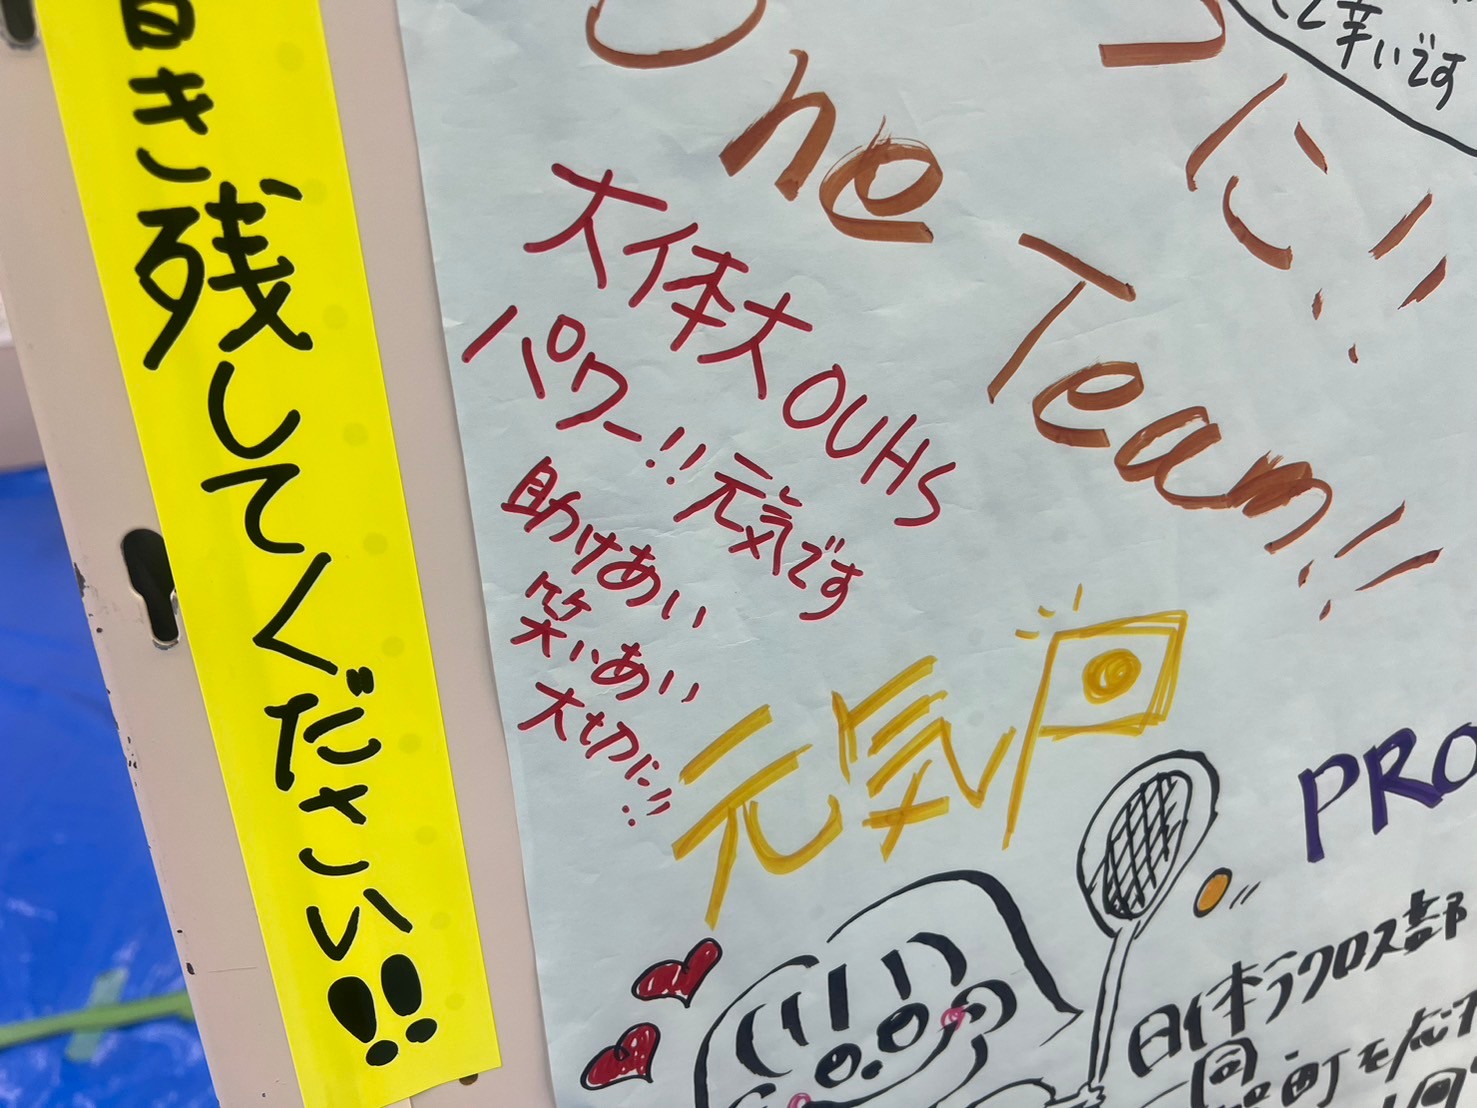 書き残してください!!
て辛いです
One
Team!!
に!!
大体大OUHS
パワー!!元気です
助けあい
笑いあい
大切に!!
元気
PRO
日体ラクロス部
町を応